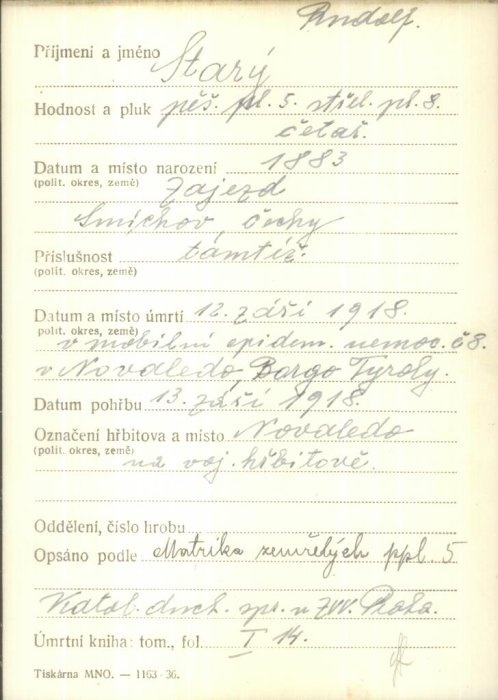 Rudolf.
Příjmení a jméno Starý
Hodnost a pluk pěš. pl. 5. střel. pl. 8.
četař.
Datum a místo narození 1883
(polit. okres, země) Zajezd
Smíchov, Čechy
Příslušnost tamtéž.
(polit. okres, země)
Datum a místo úmrtí 12. září 1918.
polit. okres, země)
v mobilní epidem. nemoc. č 8.
v Novaledo, Borgo Tyroly.
Datum pohřbu 13. září 1918.
Označení hřbitova a místo Novaledo
(polit. okres, země)
na voj. hřbitově.
Oddělení, číslo hrobu
Opsáno podle Matrika zemřelých ppl. 5
Katol. duch. spr. u ZVV. Praha.
Úmrtní kniha: tom., fol. I 14.
Tiskárna MNO. — 1163-36.